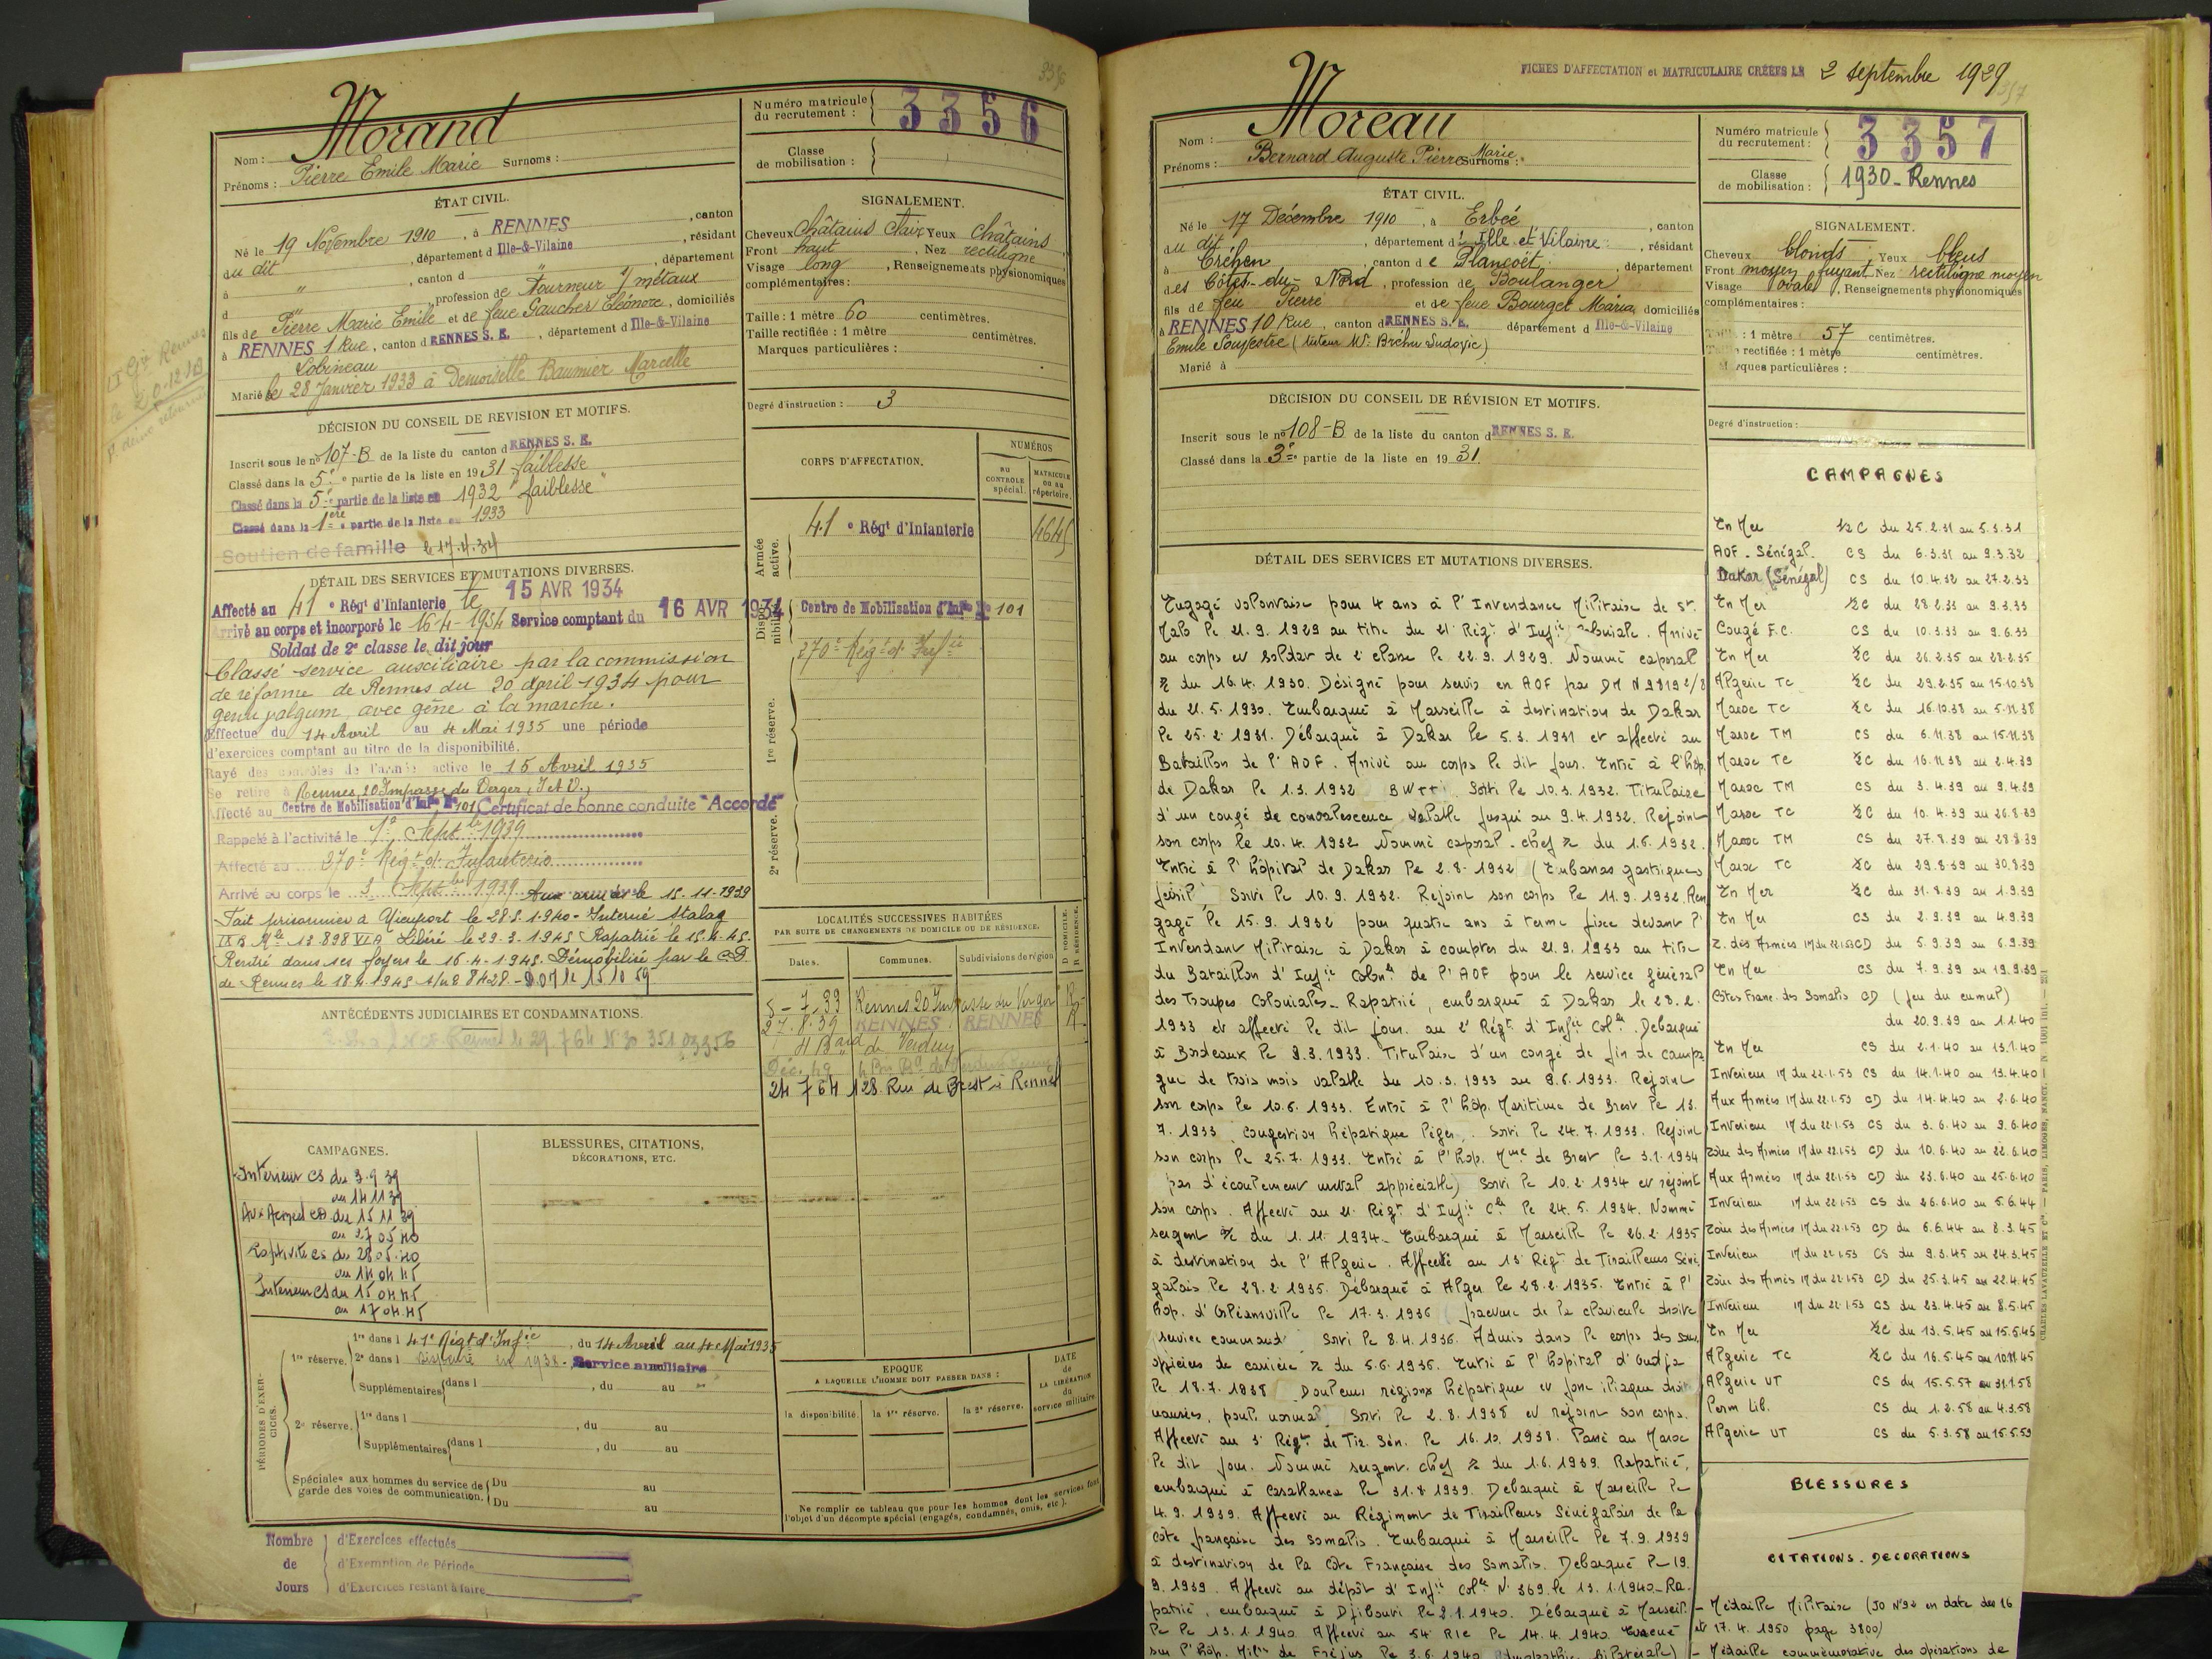 3356
Morand
Nom :
Prénoms : Pierre Emile Marie Surnoms :
Numéro matricule du recrutement : 3356
Classe de mobilisation :
ÉTAT CIVIL.
Né le 19 Novembre 1910, à RENNES, canton
du dit, département d Ille-&-Vilaine, résidant
à " , canton d " , département
d " , profession de Tourneur s/ métaux
fils de Pierre Marie Emile et de feue Gaucher Eléonore, domiciliés
à RENNES 1 Rue, canton d RENNES S. E., département d Ille-&-Vilaine
Lobineau
Marié le 28 Janvier 1933 à Demoiselle Baumier Marcelle
SIGNALEMENT.
Cheveux châtains clair Yeux châtains
Front haut, Nez rectiligne
Visage long, Renseignements physionomiques
complémentaires :
Taille : 1 mètre 60 centimètres.
Taille rectifiée : 1 mètre centimètres.
Marques particulières :
Degré d'instruction : 3
DÉCISION DU CONSEIL DE REVISION ET MOTIFS.
Inscrit sous le n° 107-B de la liste du canton d RENNES S. E.
Classé dans la 5e partie de la liste en 1931 faiblesse
Classé dans la 5e partie de la liste en 1932 "faiblesse"
Classé dans la 1ère partie de la liste en 1933
Soutien de famille le 17.4.34
DÉTAIL DES SERVICES ET MUTATIONS DIVERSES.
Affecté au 41e Régt d'Infanterie, le 15 AVR 1934
Arrivé au corps et incorporé le 16-4-1934 Service comptant du 16 AVR 1934
Soldat de 2e classe le dit jour
Classé service auxiliaire par la commission
de réforme de Rennes du 20 April 1934 pour
genu valgum avec gêne à la marche.
Effectue du 14 Avril au 4 Mai 1935 une période
d'exercices comptant au titre de la disponibilité.
Rayé des contrôles de l'armée active le 15 Avril 1935
Se retire à Rennes, 20 Impasse du Verger, I et V.
Affecté au Centre de Mobilisation d'Infie N° 101 Certificat de bonne conduite "Accordé"
Rappelé à l'activité le 1er Septbre 1939
Affecté au 270e Régt d'Infanterie
Arrivé au corps le 3 Septbre 1939 Aux armées le 15-11-1939
Fait prisonnier à Nieuport le 28.5.1940 - Interné Stalag
IX B Mle 13.898 VI A Libéré le 29.3.1945 Rapatrié le 15.4.45.
Rentré dans ses foyers le 16-4-1945. Démobilisé par le C.D.
de Rennes le 18.4.1945
CORPS D'AFFECTATION.
NUMÉROS
AU CONTROLE spécial.
MATRICULE ou au répertoire.
Armée active.
41e Régt d'Infanterie 4645
Disponibilité
Centre de Mobilisation d'Infie N° 101
270e Régt d'Infie
1re réserve.
2e réserve.
ANTÉCÉDENTS JUDICIAIRES ET CONDAMNATIONS.
LOCALITÉS SUCCESSIVES HABITÉES
PAR SUITE DE CHANGEMENTS DE DOMICILE OU DE RÉSIDENCE.
Dates. Communes. Subdivisions de région D DOMICILE. R RÉSIDENCE.
5-7.39 Rennes 20 Impasse du Verger R
27.8.39 RENNES RENNES R
4 Bard de Verdun
24 7 64 128 Rue de Brest à Rennes
CAMPAGNES.
Intérieur CS du 3.9 39
au 14 11 39
Aux Armées CD du 15 11 39
au 27 05 40
Captivité CS du 28 05 40
au 14 04 45
Intérieur CS du 15 04 45
au 17 04 45
BLESSURES, CITATIONS,
DÉCORATIONS, ETC.
PÉRIODES D'EXERCICES.
1re réserve. 1re dans l 41e Régt d'Infie, du 14 Avril au 4 Mai 1935
2e dans l dispensé en 1938 - Service auxiliaire
Supplémentaires dans l , du au
2e réserve. 1re dans l , du au
Supplémentaires dans l , du au
Spéciales aux hommes du service de garde des voies de communication. Du au
Du au
EPOQUE
A LAQUELLE L'HOMME DOIT PASSER DANS :
la disponibilité. la 1re réserve. la 2e réserve.
DATE de LA LIBÉRATION du service militaire.
Ne remplir ce tableau que pour les hommes dont les services font
l'objet d'un décompte spécial (engagés, condamnés, omis, etc.).
Nombre de Jours
d'Exercices effectués
d'Exemption de Période
d'Exercices restant à faire
FICHES D'AFFECTATION et MATRICULAIRE CRÉÉES LE 2 septembre 1929
Moreau
Nom :
Prénoms : Bernard Auguste Pierre Marie Surnoms :
Numéro matricule du recrutement : 3357
Classe de mobilisation : 1930 - Rennes
ÉTAT CIVIL.
Né le 17 Décembre 1910, à Erbée, canton
du dit, département d'Ille et Vilaine, résidant
à Créhen, canton de Plancoët, département
des Côtes-du-Nord, profession de Boulanger
fils de feu Pierre et de feue Bourget Maria, domiciliés
à RENNES 10 Rue, canton d RENNES S. E. département d Ille-&-Vilaine
Emile Souvestre (tuteur Mr Bréhu Ludovic)
Marié à
SIGNALEMENT.
Cheveux blonds, Yeux bleus
Front moyen fuyant Nez rectiligne moyen
Visage ovale, Renseignements physionomiques
complémentaires :
: 1 mètre 57 centimètres.
rectifiée : 1 mètre centimètres.
Marques particulières :
Degré d'instruction :
DÉCISION DU CONSEIL DE RÉVISION ET MOTIFS.
Inscrit sous le n° 108-B de la liste du canton d RENNES S. E.
Classé dans la 3e partie de la liste en 1931.
DÉTAIL DES SERVICES ET MUTATIONS DIVERSES.
Engagé volontaire pour 4 ans à l'Intendance Militaire de St.
Malo le 21.9.1929 au titre du 21e Régt d'Infie Coloniale. Arrivé
au corps et soldat de 2e classe le 22.9.1929. Nommé caporal
% du 16.4.1930. Désigné pour servir en AOF par DM N°9819 2/8
du 21.5.1930. Embarqué à Marseille à destination de Dakar
le 25.2.1931. Débarqué à Dakar le 5.3.1931 et affecté au
Bataillon de l'AOF. Arrivé au corps le dit jour. Entré à l'hôp.
de Dakar le 1.3.1932 BW++. Sorti le 10.3.1932. Titulaire
d'un congé de convalescence valable jusqu'au 9.4.1932. Rejoint
son corps le 10.4.1932 Nommé caporal-chef % du 1.6.1932.
Entré à l'hôpital de Dakar le 2.8.1932 (Embarras gastrique
fébrile) Sorti le 10.9.1932. Rejoint son corps le 11.9.1932. Ren
gagé le 15.9.1932 pour quatre ans à terme fixe devant l'
Intendant Militaire à Dakar à compter du 21.9.1933 au titre
du Bataillon d'Infie Colonle de l'AOF pour le service général
des Troupes Coloniales. Rapatrié, embarqué à Dakar le 28.2.
1933 et affecté le dit jour au 2e Régt d'Infie Colle. Débarqué
à Bordeaux le 9.3.1933. Titulaire d'un congé de fin de campa
gne de trois mois valable du 10.3.1933 au 9.6.1933. Rejoint
son corps le 10.6.1933. Entré à l'hôp. Maritime de Brest le 13.
7.1933 congestion hépatique légère. Sorti le 24.7.1933. Rejoint
son corps le 25.7.1933. Entré à l'hôp. Mme de Brest le 3.1.1934
pas d'écoulement urétral appréciable) Sorti le 10.2.1934 et rejoint
son corps. Affecté au 21e Régt d'Infie Cle le 24.5.1934. Nommé
sergent % du 1.11.1934. Embarqué à Marseille le 26.2.1935
à destination de l'Algérie. Affecté au 15e Régt de Tirailleurs Séné
galais le 28.2.1935. Débarqué à Alger le 28.2.1935. Entré à l'
hôp. d'Orléansville le 17.3.1936 fracture de la clavicule droite
service commandé Sorti le 8.4.1936. Admis dans le corps des sous
officiers de carrière % du 5.6.1936. Entré à l'hôpital d'Oudja
le 18.7.1938 Douleurs région hépatique et fosse iliaque droite
nausées, pouls normal. Sorti le 2.8.1938 et rejoint son corps.
Affecté au 3e Régt de Tir. Sén. le 16.10.1938. Passé au Maroc
le dit jour. Nommé sergent-chef % du 1.6.1939. Rapatrié,
embarqué à Casablanca le 31.8.1939. Débarqué à Marseille le
4.9.1939. Affecté au Régiment de Tirailleurs Sénégalais de la
côte française des Somalis. Embarqué à Marseille le 7.9.1939
à destination de la Côte Française des Somalis. Débarqué le 19.
9.1939. Affecté au dépôt d'Infie Colle N° 369 le 13.1.1940. Ra-
patrié, embarqué à Djibouti le 2.1.1940. Débarqué à Marseil-
le le 13.1.1940. Affecté au 54e RIC le 14.4.1940. Evacué
sur l'hôp. Milre de Fréjus le 3.6.1940
CAMPAGNES
En Mer ½ C du 25.2.31 au 5.3.31
AOF. Sénégal. CS du 6.3.31 au 9.3.32
Dakar (Sénégal) CS du 10.4.32 au 27.2.33
En Mer ½C du 28.2.33 au 9.3.33
Congé F.C. CS du 10.3.33 au 9.6.33
En Mer ½C du 26.2.35 au 28.2.35
Algérie TC ½C du 29.2.35 au 15.10.38
Maroc TC ½C du 16.10.38 au 5.11.38
Maroc TM CS du 6.11.38 au 15.11.38
Maroc TC ½C du 16.11.38 au 2.4.39
Maroc TM CS du 3.4.39 au 9.4.39
Maroc TC ½C du 10.4.39 au 26.8.39
Maroc TM CS du 27.8.39 au 28.8.39
Maroc TC ½C du 29.8.39 au 30.8.39
En Mer ½C du 31.8.39 au 1.9.39
En Mer CS du 2.9.39 au 4.9.39
Z. des Armées 17 du 22.1.53 CD du 5.9.39 au 6.9.39
En Mer CS du 7.9.39 au 19.9.39
Côtes Franc. des Somalis CD (feu du cumul)
du 20.9.39 au 1.1.40
En Mer CS du 2.1.40 au 13.1.40
Intérieur 17 du 22.1.53 CS du 14.1.40 au 13.4.40
Aux Armées 17 du 22.1.53 CD du 14.4.40 au 2.6.40
Intérieur 17 du 22.1.53 CS du 3.6.40 au 9.6.40
Zone des Armées 17 du 22.1.53 CD du 10.6.40 au 22.6.40
Aux Armées 17 du 22.1.53 CD du 23.6.40 au 25.6.40
Intérieur 17 du 22.1.53 CS du 26.6.40 au 5.6.44
Zone des Armées 17 du 22.1.53 CD du 6.6.44 au 8.3.45
Intérieur 17 du 22.1.53 CS du 9.3.45 au 24.3.45
Zone des Armées 17 du 22.1.53 CD du 25.3.45 au 22.4.45
Intérieur 17 du 22.1.53 CS du 23.4.45 au 8.5.45
En Mer ½C du 13.5.45 au 15.5.45
Algérie TC ½C du 16.5.45 au 10.11.45
Algérie UT CS du 15.5.57 au 31.1.58
Perm Lib. CS du 1.2.58 au 4.3.58
Algérie UT CS du 5.3.58 au 15.5.59
BLESSURES
CITATIONS. DECORATIONS
- Médaille Militaire (JO N°92 en date des 16
et 17.4.1950 page 3800)
- Médaille commémorative des opérations de
CHARLES LAVAUZELLE ET Cie — PARIS, LIMOGES, NANCY.